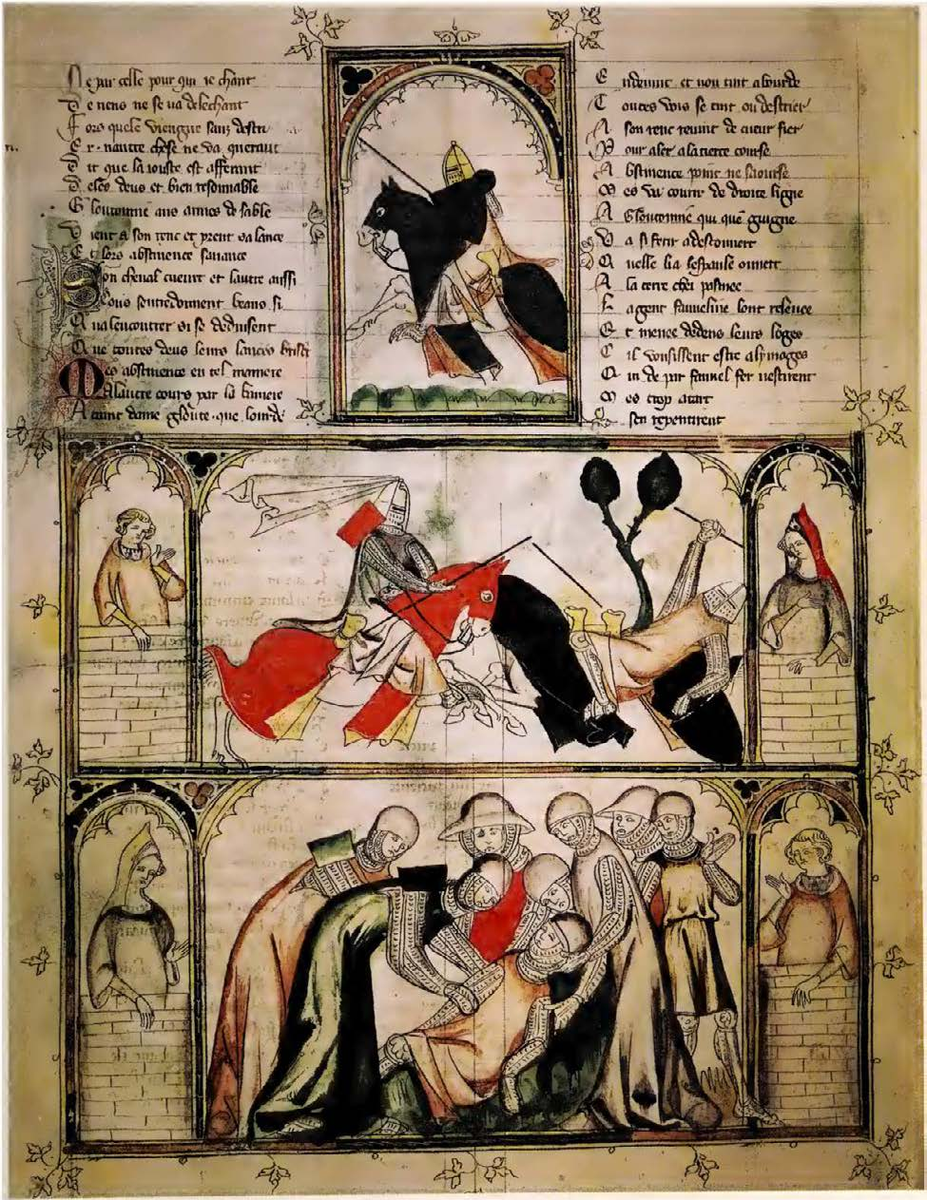 Ne par celle pour qui ie chant
De riens ne se va delechant
Fors quele viengne sanz destri
Er. nautre chose ne va querant
Dit que la iouste est afferant
Deles deus et bien resonnable
Gloutonnie aus armes de sable
Vient a son renc et prent sa lance
Et lors abstinence sauance
Son cheval cueurt et lautre aussi
Tous sentredonnent si
Qua lencontrer si se deduisent
Que toutes deus leurs lances
Mes abstinence en tel maniere
A lautre cours par la baniere
Ataint dame gloute que lourde
Endevint et non tint a bourde
Toutes vois se tint ou destrier
A son renc revint de cueur fier
Pour aler a la tierce course
Abstinence point ne
Mes va courir de droite ligne
A gloutonnie qui que guigne
Va si ferir a descouvert
Quelle li a lespaule ouvert
A la terre chei pasmee
La gent fauueline lont releuee
Et menee dedens leurs loges
Cil vousissent estre a lymoges
Qui de par fauuel fer vestirent
Mes trop a tart
sen repentirent